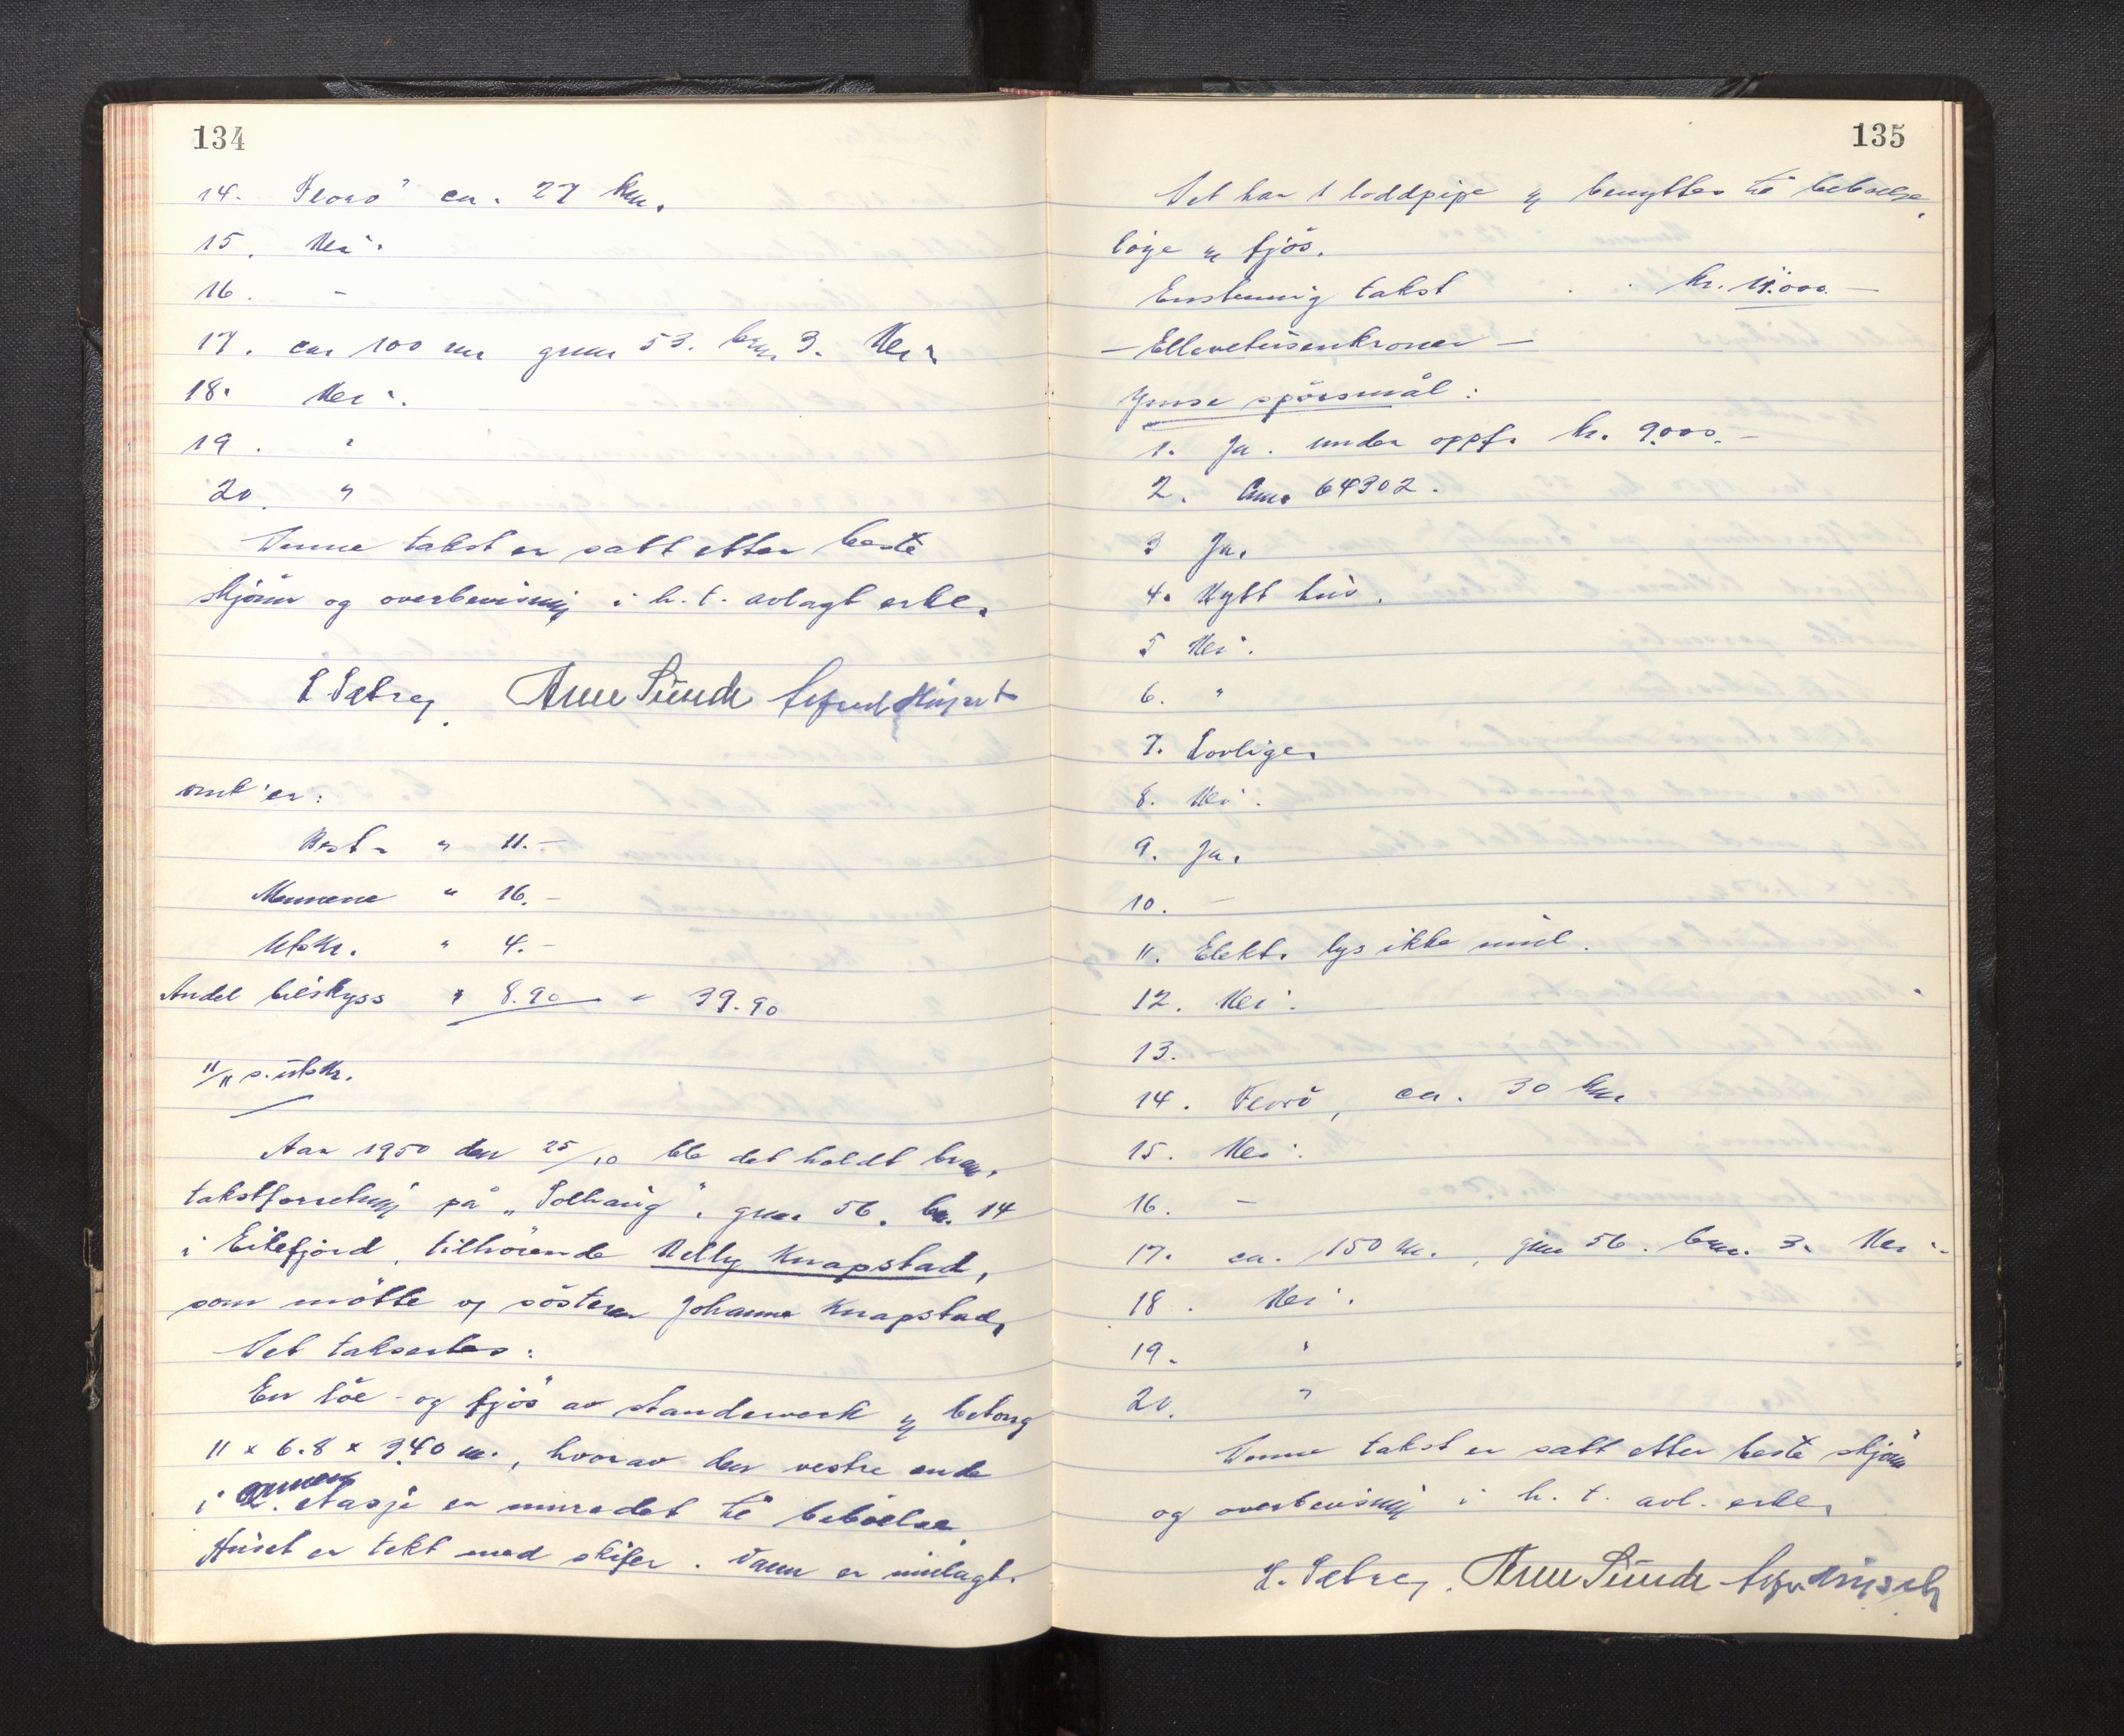 134
14. Florø ca. 27 km.
15. Nei.
16. -
17. ca 100 m gnr 53. bnr. 3. Nei
18. Nei.
19. "
20. "
Denne takst er satt etter beste
skjønn og overbevisning i h. t. avlagt ed.
L. Sætrey. Arne Sunde
omk'er:
Best. " 11.-
Mennene " 16.-
Utskr. " 4.-
Andel bilskyss " 8.90 " 39.90
11/11 s. utskr.
Aar 1950 den 25/10 ble det holdt brann-
takstforretning på "Solhaug", gnr. 56. br. 14
i Eikefjord, tilhørende Nelly Knapstad,
som møtte og søsteren Johanna Knapstad,
Det takseres:
En løe- og fjøs av standewerk og betong
11 x 6.8 x 3.40 m., hvorav den vestre ende
i annen etasje er innredet til beboelse.
Huset er tekt med skifer. Vann er innlagt.
135
Det har 1 loddpipe og benyttes til beboelse,
løge og fjøs.
Enstemmig takst . . kr. 11.000.-
- Ellevetusenkroner -
Ymse spörsmål:
1. Ja. under oppf. kr. 9.000.-
2. Anr. 64302.
3 Ja.
4. Nytt hus.
5 Nei.
6. "
7. Lovlige.
8. Nei.
9. Ja.
10. -
11. Elekt. lys ikke innl.
12. Nei.
13. -
14. Florø, ca. 30 km
15. Nei.
16. -
17. ca. 150 m., gnr 56. bnr. 3. Nei.
18. Nei.
19. "
20. "
Denne takst er satt etter beste skjønn
og overbevisning i h. t. avl. ed.
L. Sætrey. Arne Sunde